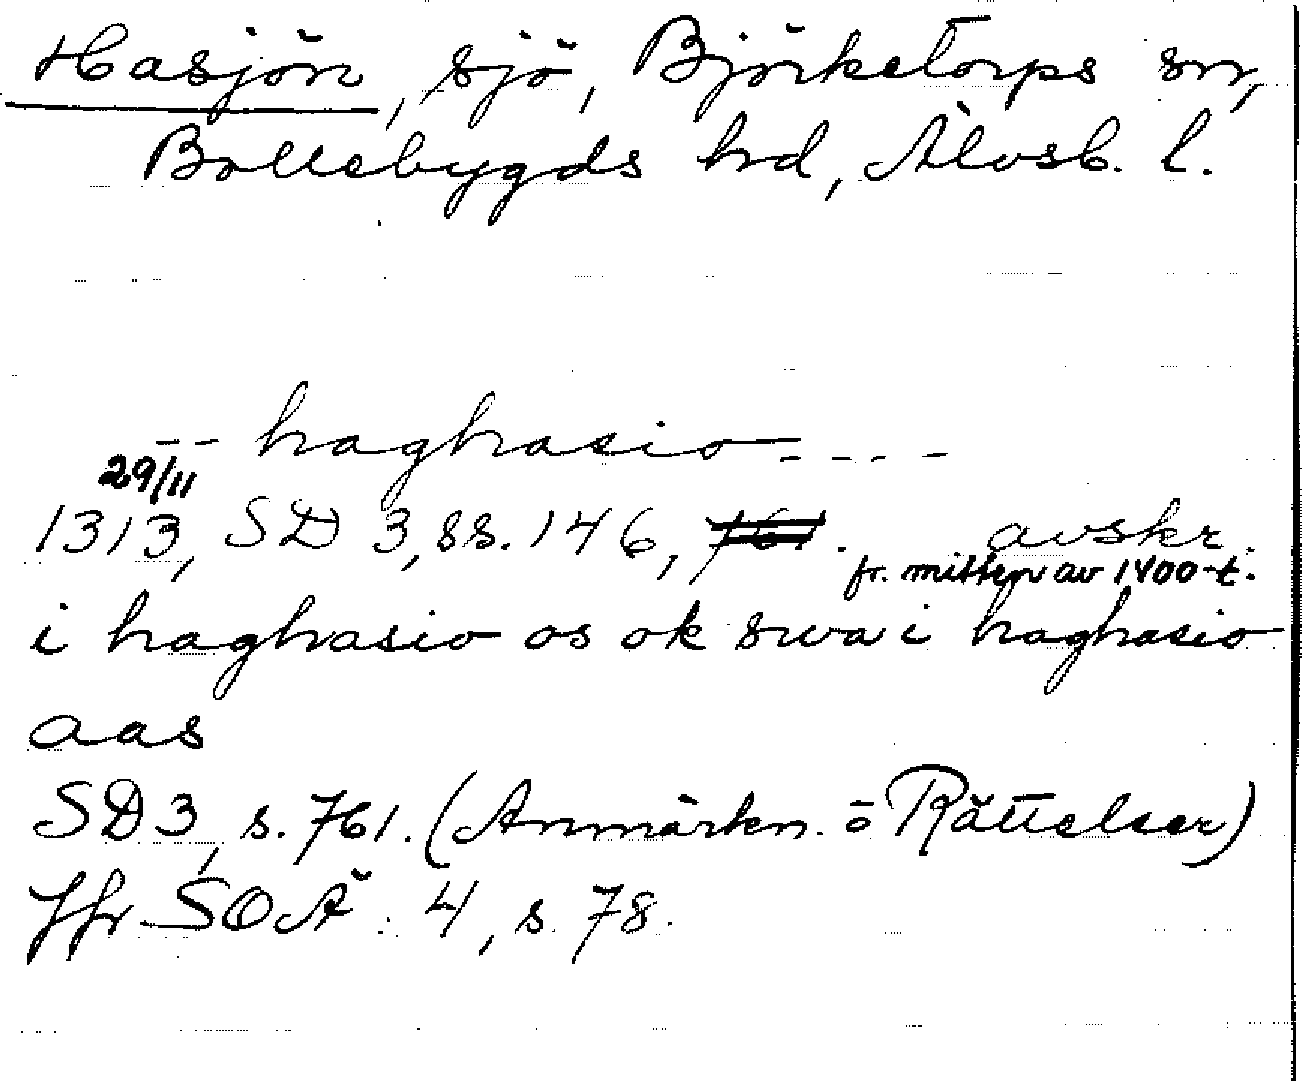 Hasjön, sjö, Björketorps sn,
Bollebygds hd, Älvsb. l.
-- haghasio ----
29/11
1313, SD 3, ss. 146, 761. avskr.
fr. mitten av 1400-t.
i haghasio os ok swa i haghasio
aas
SD 3, s. 761. (Anmärkn. o Rättelser)
Jfr SOÄ: 4, s. 78.